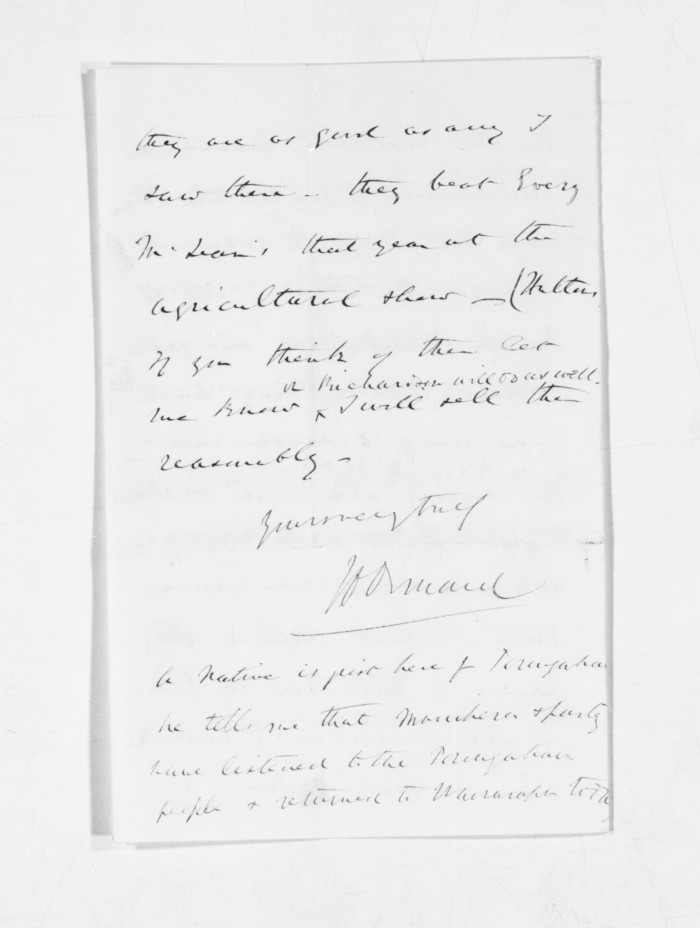 they are as good as any I
saw there - they beat Every
McLean's that year at the
agricultural show - (Hultons
If you think of them let
or Richardson will do as well -
me know x I will sell them
reasonably -
Yours very truly
JD Ormond
A Native is just here f Porongahau
he tells me that Manihera & party
have listened to the Porongahau
people & returned to Wairarapa